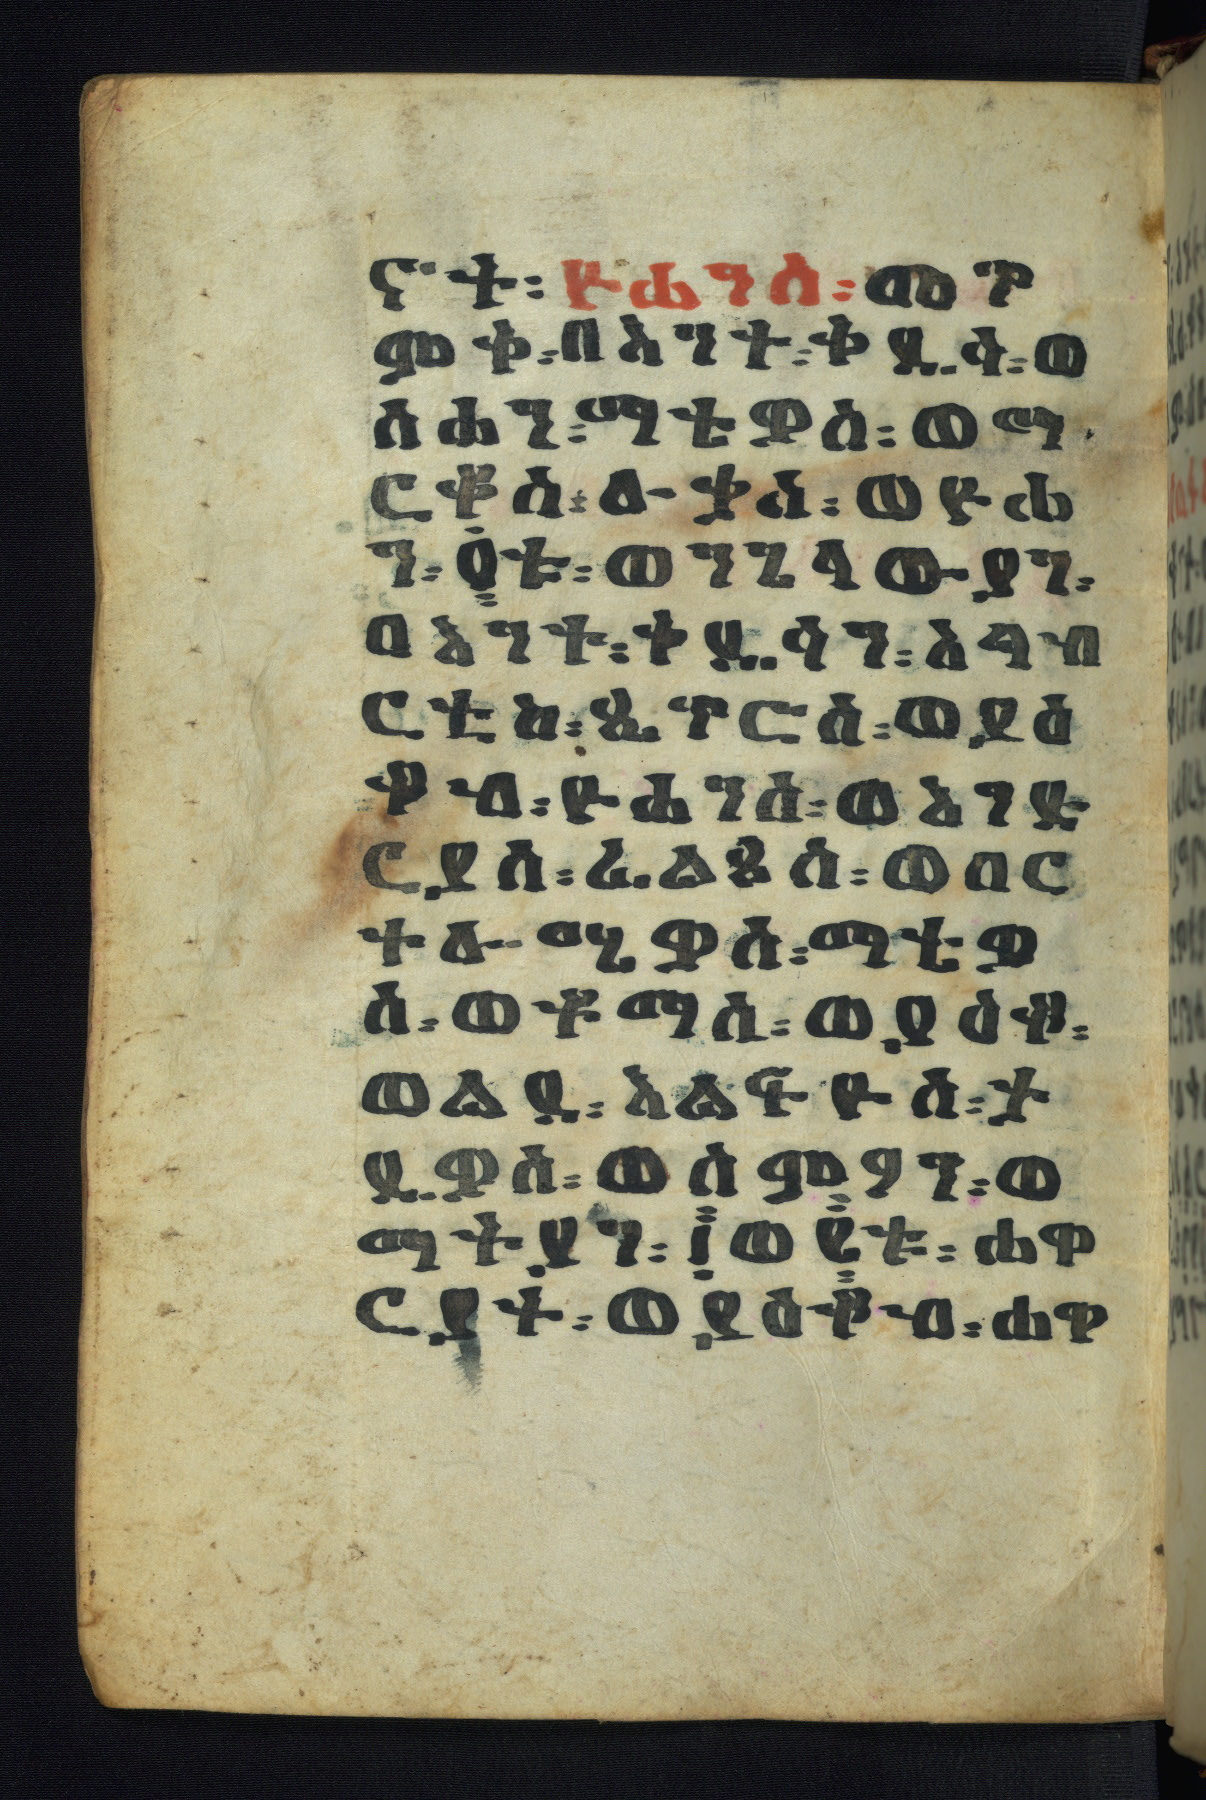 ናት፡ ዮሐንስ፡ መጥ
ምቀ፡ በእንተ፡
ማቴዎስ፡ ወማ
ርቆስ፡ ሉቃስ፡ ወዮሐ
ን፡ ፬ቱ፡ ወንጌላውያን፡
በእንተ፡ ቅዱሳን፡ አግብ
ርቲከ፡ ጴጥሮስ፡ ወያዕ
ቆብ፡ ዮሐንስ፡ ወእንድ
ርያስ፡ ፊልጶስ፡ ወበር
ተሎሜዎስ፡ ማቴዎ
ስ፡ ወቶማስ፡ ወያዕቆ፡
ወልደ፡ እልፍዮስ፡ ታ
ዴዎስ፡ ወስምዖን፡ ወ
ማትያን፡ ፲ወ፪ቱ፡ ሐዋ
ርያት፡ ወያዕቆብ፡ ሐዋ